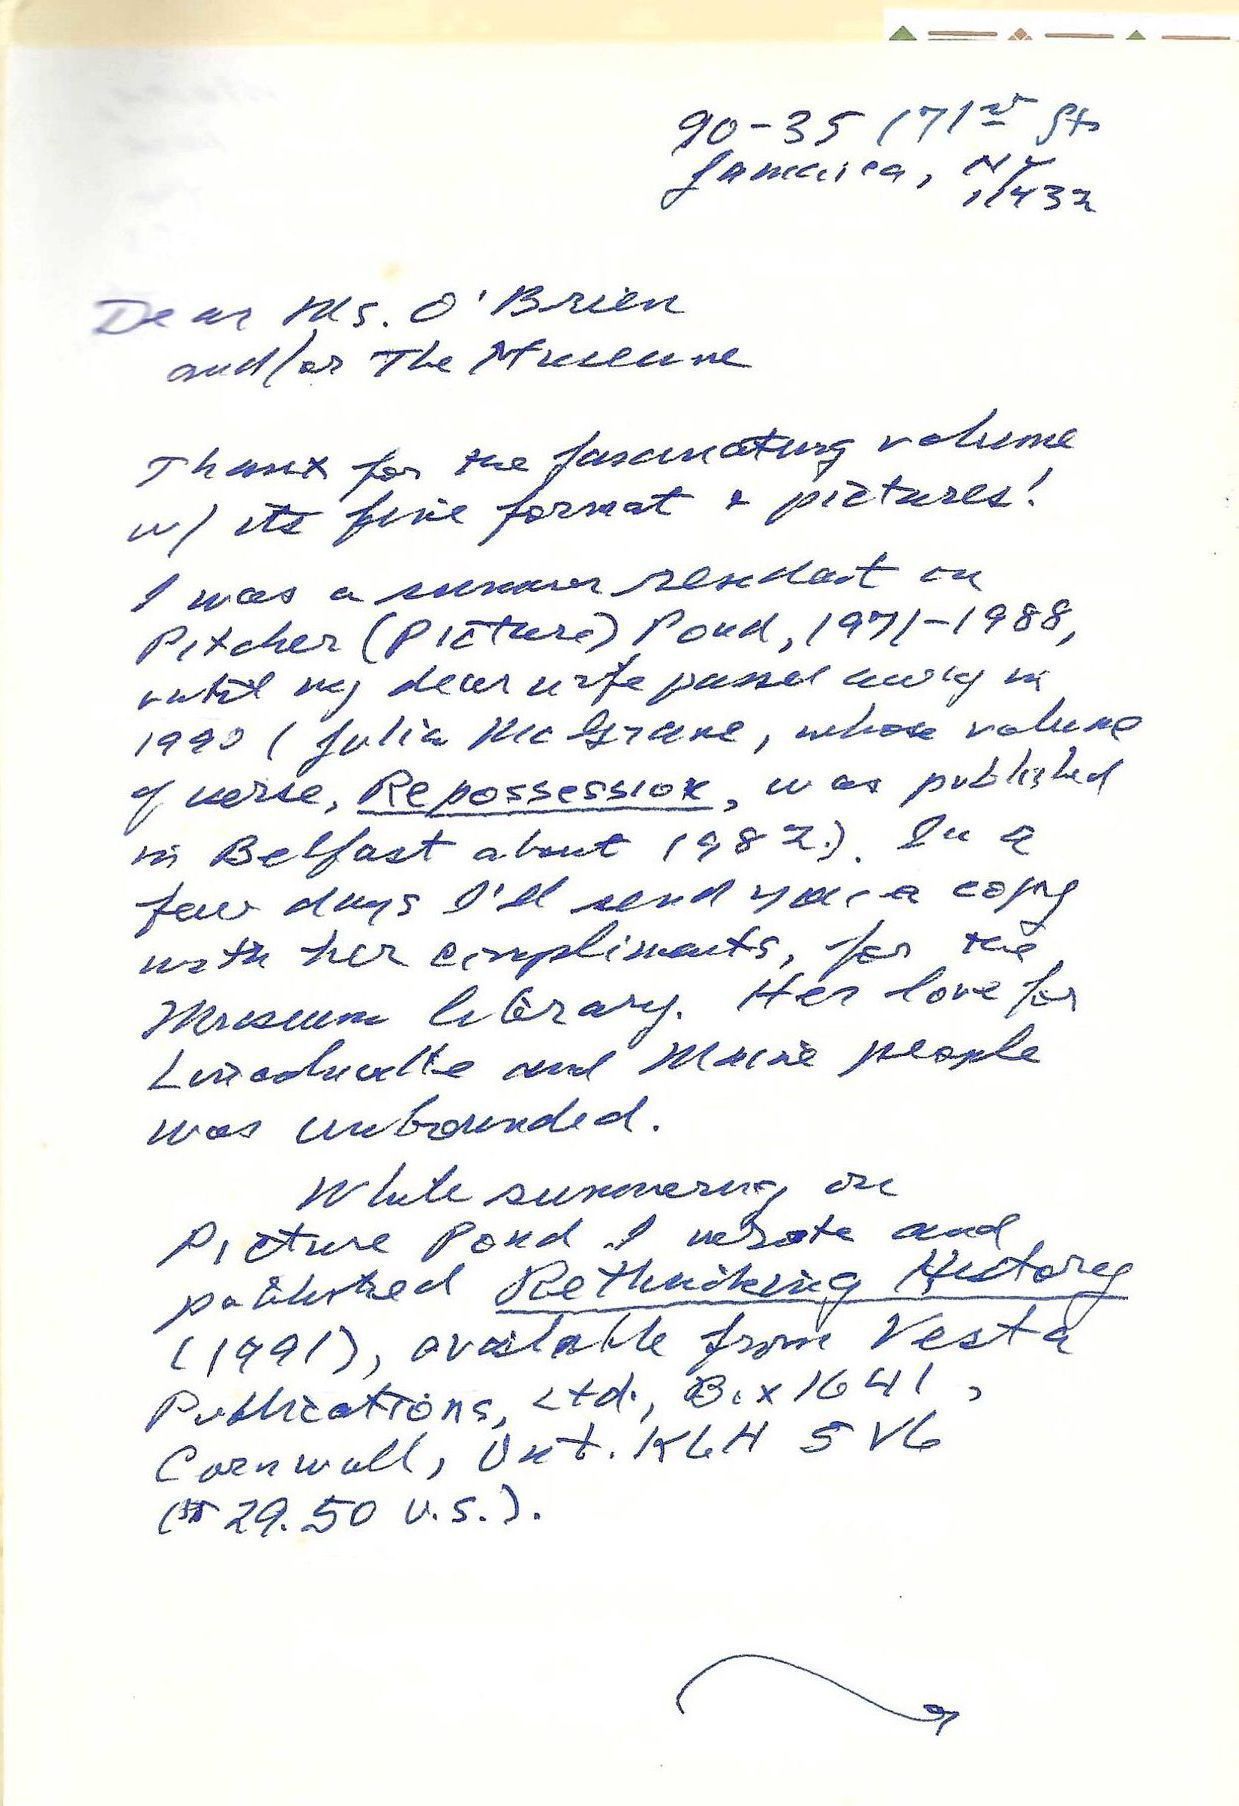 90-35 171st St
Jamaica, NY
11432
Dear Ms. O'Brien
and/or The Museum
Thanx for the fascinating volume
w/ its fine format & pictures!
I was a summer resident on
Pitcher (Picture) Pond, 1971-1988,
until my dear wife passed away in
1990 (Julia McGrane, whose volume
of verse, Repossession, was published
in Belfast about 1982.). In a
few days I'll send you a copy
with her compliments, for the
Museum library. Her love for
Lincolnville and Maine people
was unbounded.
While summering on
Picture Pond I wrote and
published Rethinking History
(1991), available from Vesta
Publications, Ltd., Box 1641,
Cornwall, Ont. K6H 5V6
($29.50 U.S.).